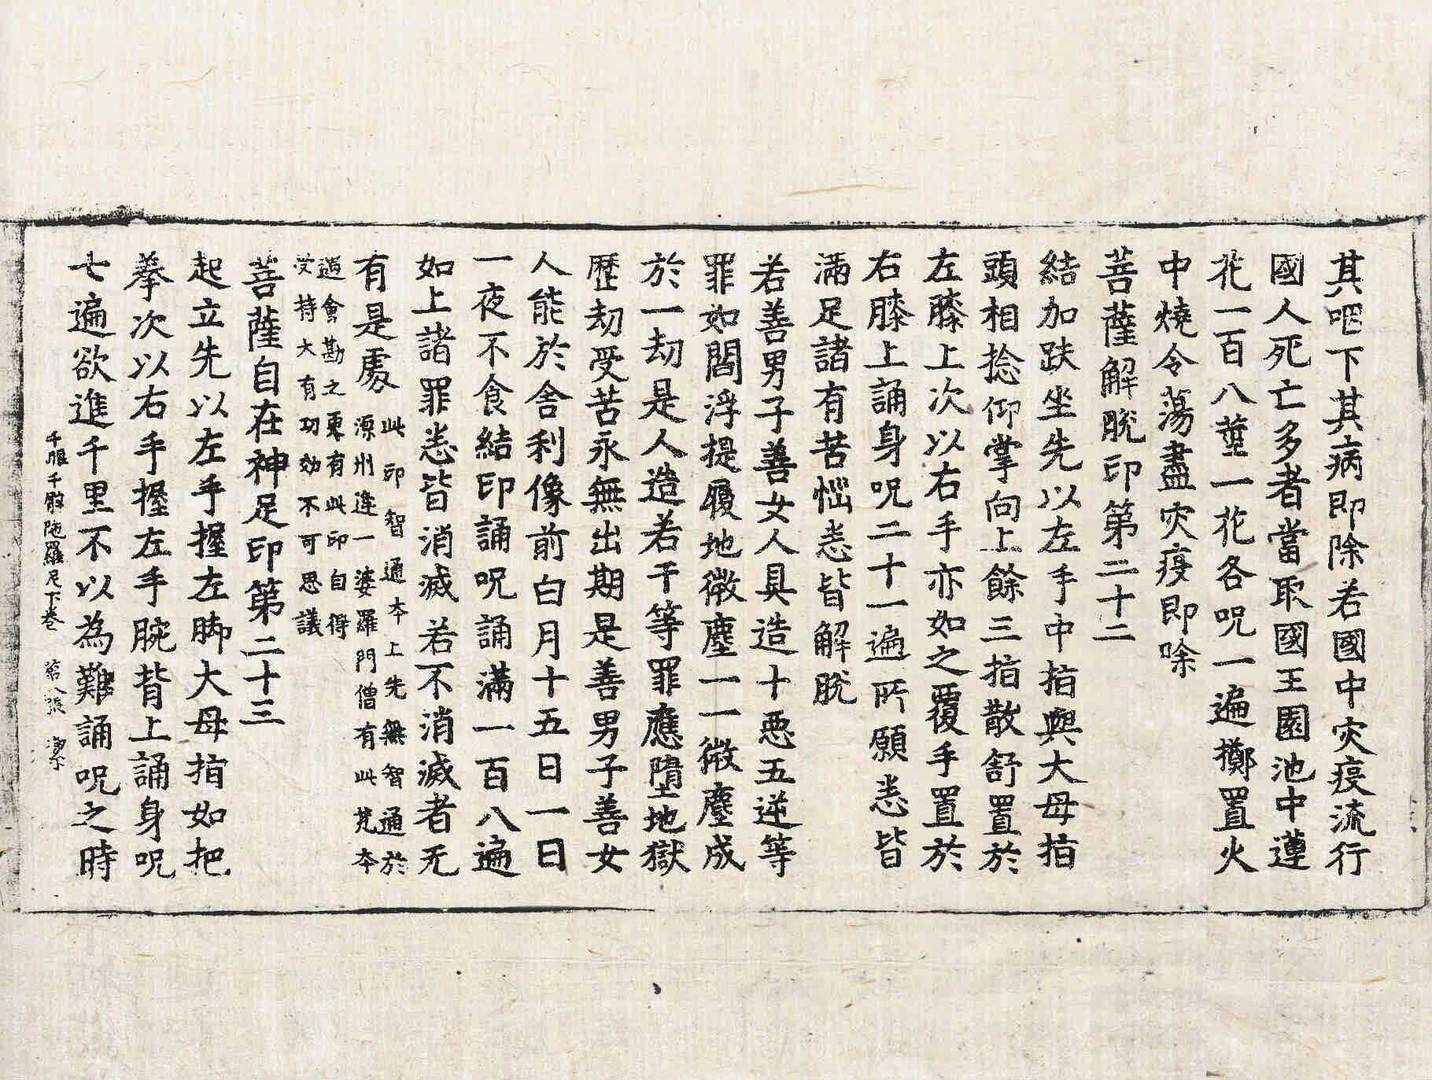 其咽下其病即除若國中灾疫流行
國人死亡多者當取國王園池中蓮
花一百八莖一花各呪一遍擲置火
中燒令蕩盡灾疫即除
菩薩解脫印第二十二
結加趺坐先以左手中指與大母指
頭相捻仰掌向上餘三指散舒置於
左膝上次以右手亦如之覆手置於
右膝上誦身呪二十一遍所願悉皆
滿足諸有苦惱悉皆解脫
若善男子善女人具造十惡五逆等
罪如閻浮提履地微塵一一微塵成
於一劫是人造若干等罪應墮地獄
歷劫受苦永無出期是善男子善女
人能於舍利像前白月十五日一日
一夜不食結印誦呪誦滿一百八遍
如上諸罪悉皆消滅若不消滅者无
有是處
此印智通本上先無智通於
源州逢一婆羅門僧有此梵本
過會勘之更有此印自得
受持大有功効不可思議
菩薩自在神足印第二十三
起立先以左手握左脚大母指如把
拳次以右手握左手腕背上誦身呪
七遍欲進千里不以為難誦呪之時
千眼千臂陁羅尼下卷 第八張